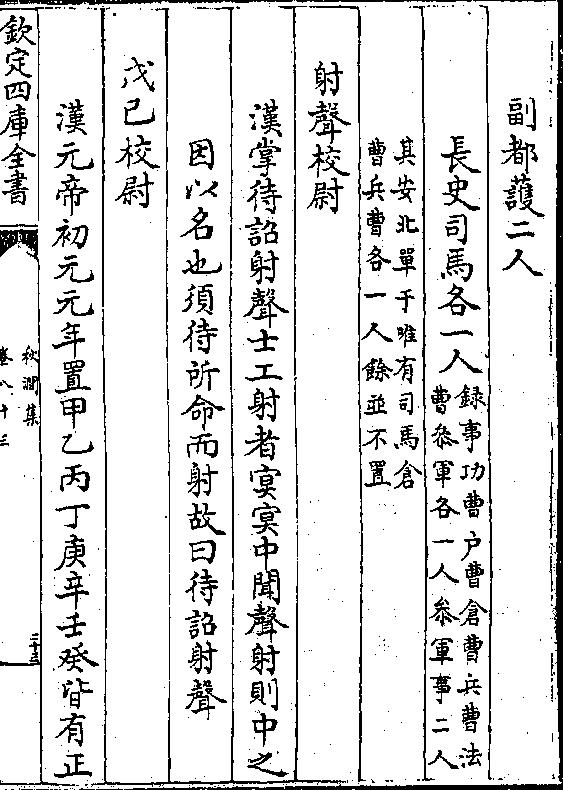 副都護二人
長史司馬各一人録事功曹户曹倉曹兵曹法
曹叅軍各一人叅軍事二人
其安北單于唯有司馬倉
曹兵曹各一人餘並不置
射聲校尉
漢掌待詔射聲士工射者㝠㝠中聞聲射則中之
因以名也須待所命而射故曰待詔射聲
戊已校尉
漢元帝初元元年置甲乙丙丁庚辛壬癸皆有正
欽定四庫全書
秋澗集
卷八十三
三十三